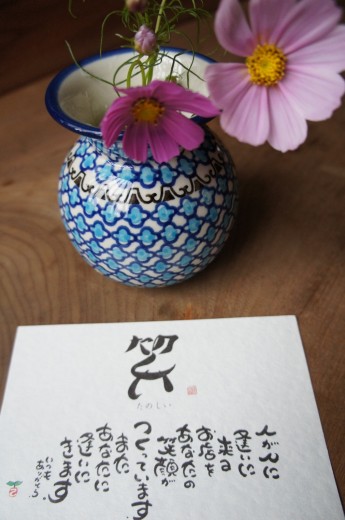 笑
たのしい
人が人に
逢いに
来る
お店を
あなたの
笑顔が
つくっています
また
あなたに
逢いに
きます
いつも
ありがとう